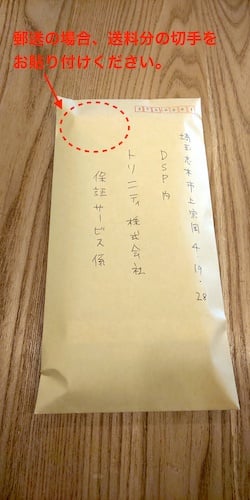 郵送の場合、送料分の切手を
お貼り付けください。
埼玉志木市上宗岡4-19-28
DSP内
トリニティ株式会社
保証サービス係